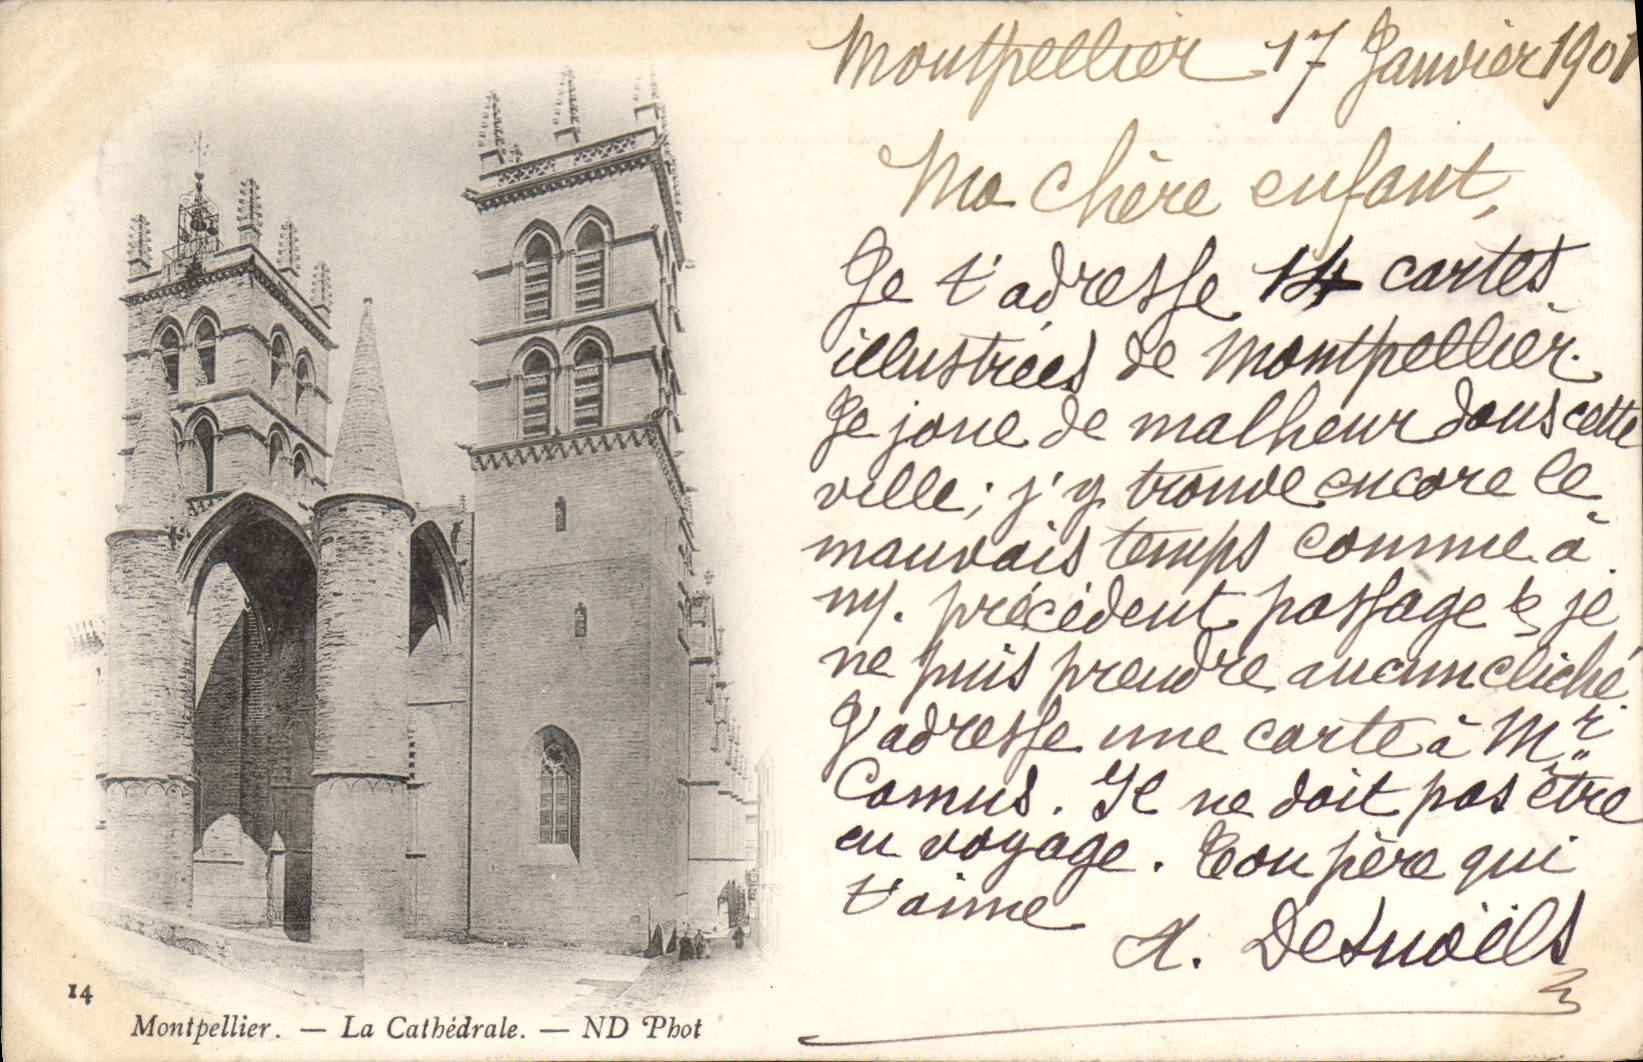 Montpellier 17 Janvier 1901
Ma chère enfant,
Je t'adresse 14 cartes
illustrées de Montpellier.
Je joue de malheur dans cette
ville; j'y trouve encore le
mauvais temps comme à
my. précédent passage & je
ne puis prendre aucun cliché.
J'adresse une carte à Mr.
Camus. Il ne doit pas être
en voyage. Ton père qui
t'aime
A. Desnoëls
14
Montpellier. — La Cathédrale. — ND Phot